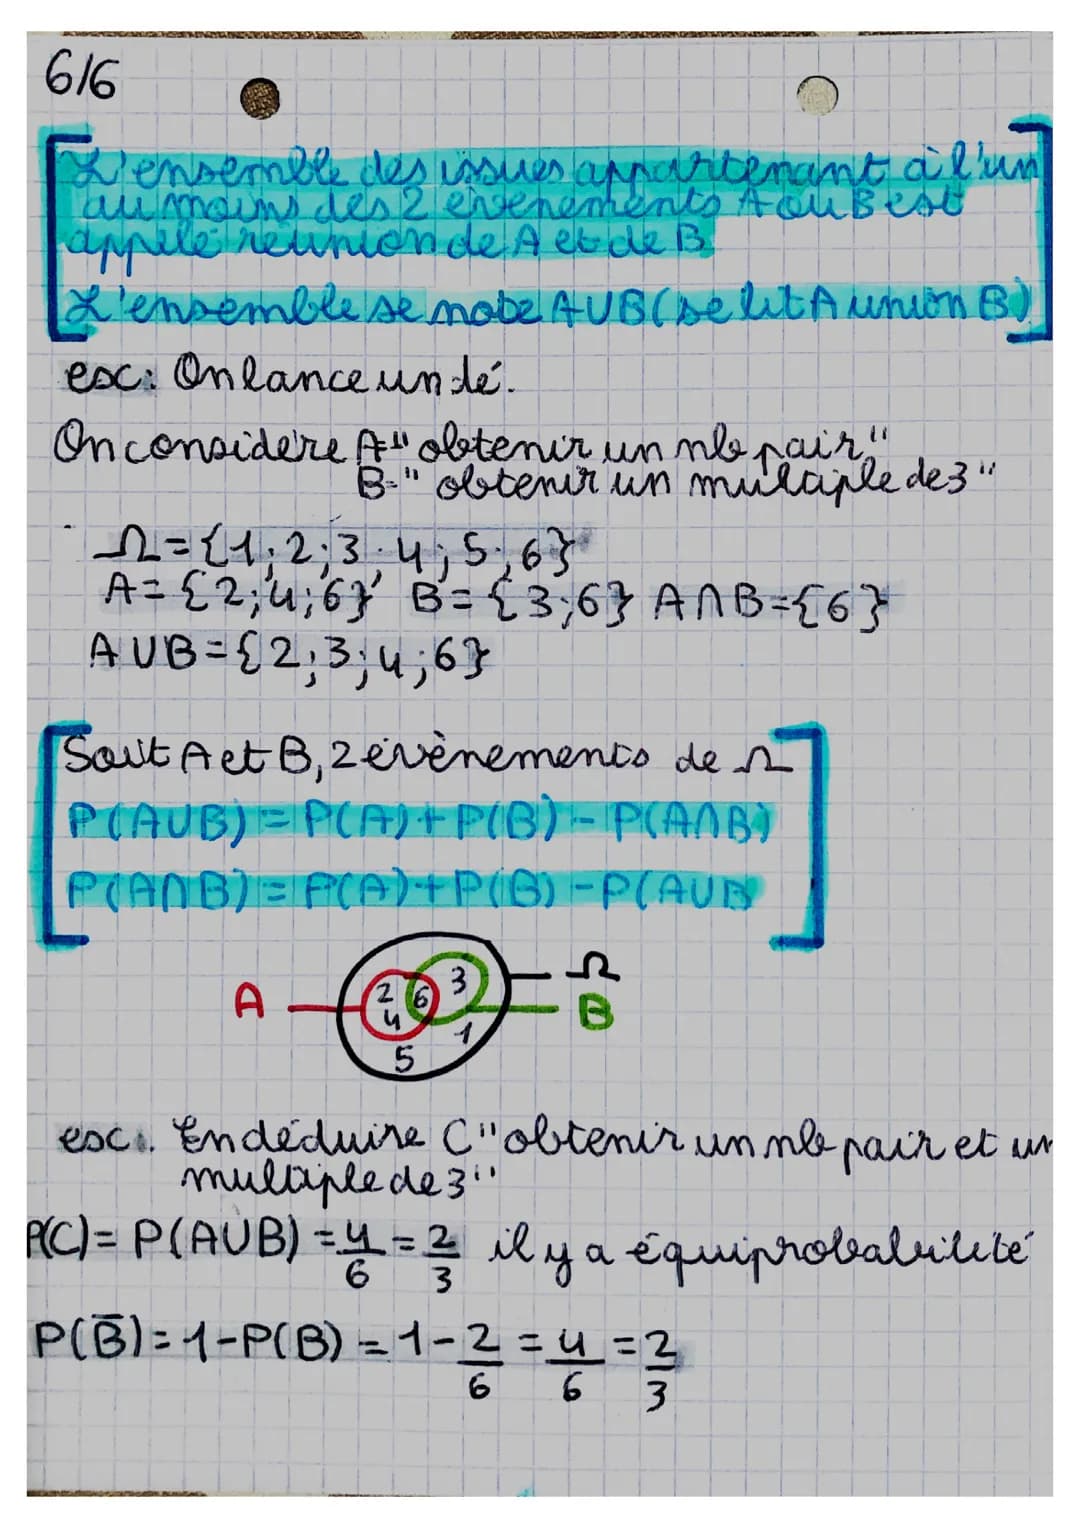 6/6
L'ensemble des issues appartenant à l'un
au moins des 2 évènements A ou B est
appelé réunion de A et de B
L'ensemble se note A∪B (se lit A union B)
ex: On lance un dé.
On considère A="obtenir un nb pair"
B="obtenir un multiple de 3"
Ω={1;2;3;4;5;6}
A={2;4;6} B={3;6} A∩B={6}
A∪B={2;3;4;6}
Soit A et B, 2 évènements de Ω
P(A∪B)=P(A)+P(B)-P(A∩B)
P(A∩B)=P(A)+P(B)-P(A∪B
Ω
A 2 6 3 B
4 1
5
ex: En déduire C"obtenir un nb pair et un
multiple de 3"
P(C)=P(A∪B)=4/6=2/3 il y a équiprobabilité
P(B̅)=1-P(B)=1-2/6=4/6=2/3